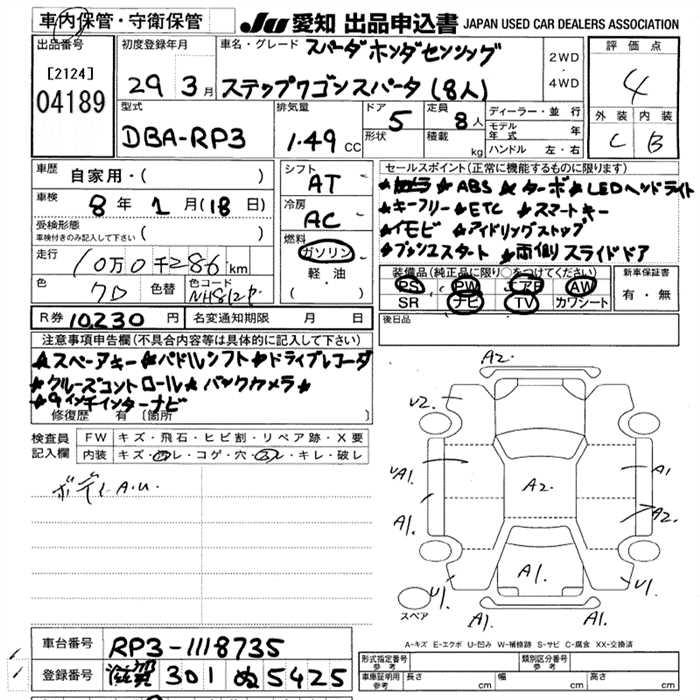 車内保管・守衛保管
JU 愛知 出品申込書 JAPAN USED CAR DEALERS ASSOCIATION
出品番号
[2124]
04189
初度登録年月
29 3月
車名・グレード スパーダホンダセンシング
ステップワゴンスパータ (8人)
2WD
・
4WD
評価点
4
外装 内装
C B
型式
DBA-RP3
排気量
1.49 CC
ドア 5
形状
定員 8人
積載 kg
ディーラー・並行
モデル年式 年
ハンドル 左・右
車歴
自家用・( )
車検
8年 2月(18日)
受検形態
車検付きのみ記入して下さい ( )
走行
10万0千286km
色
クロ
色替
色コード
NH812P
シフト
AT
冷房
AC
燃料
ガソリン
・
軽油
セールスポイント(正常に機能するものに限ります)
★ABS ★ターボ ★LEDヘッドライト
★キーフリー ★ETC ★スマートキー
★イモビ ★アイドリングストップ
★プッシュスタート ★両側スライドドア
装備品(純正品に限り○をつけてください)
PS PW エアB AW
SR ナビ TV カワシート
新車保証書
有・無
R券 10230円
名変通知期限 月 日
後日品
注意事項申告欄(不具合内容等は具体的に記入して下さい)
★スペアキー ★パドルシフト ★ドライブレコーダ
★クルーズコントロール ★バックカメラ ★
★9インチインターナビ
修復歴 有 [箇所 ]
検査員記入欄
FW キズ・飛石・ヒビ割・リペア跡・X要
内装 キズ・汚レ・コゲ・穴・スレ・キレ・破レ
ボディ A.U.
A2.
U2.
UA1.
A1.
A2.
A1.
A2
U1.
A1.
U1.
A1.
スペア
A-キズ E-エクボ U-凹み W-補修跡 S-サビ C-腐食 XX-交換済
車台番号 RP3-1118735
登録番号 滋賀 301 ぬ 5425
形式指定番号 参考
類別区分番号 参考
車庫証明用 参考
長さ cm 幅 cm 高さ cm